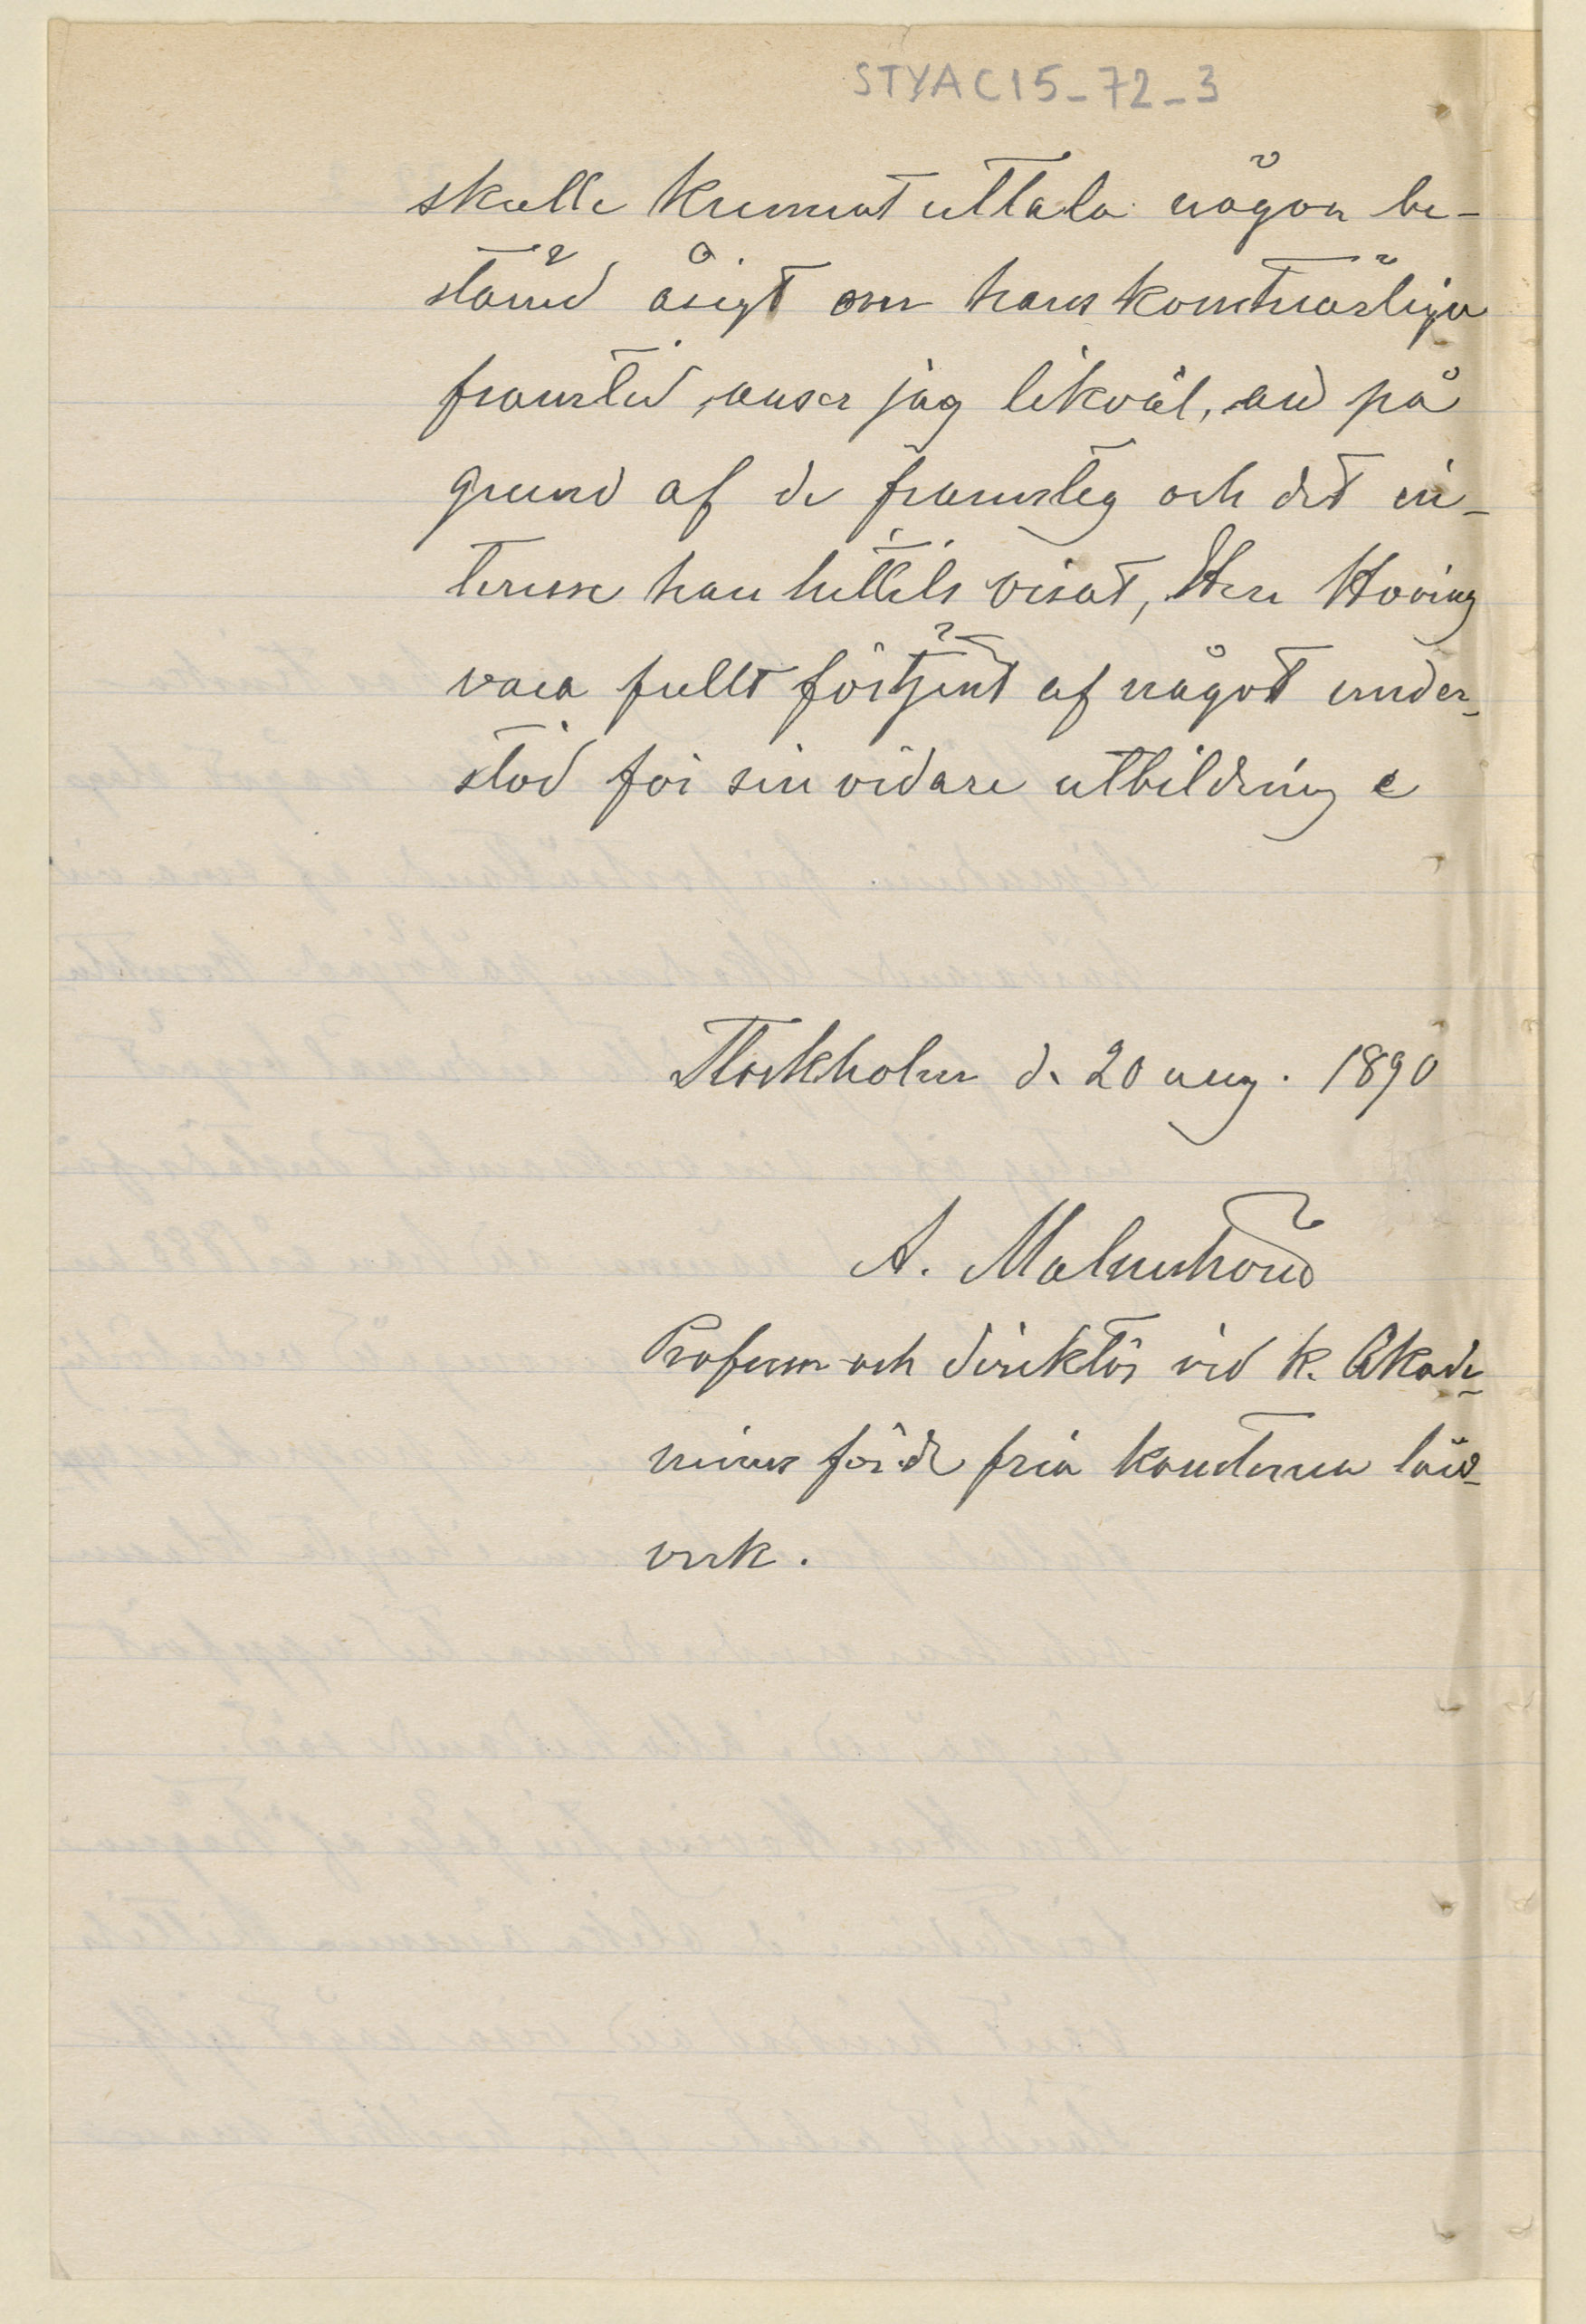 STYAC15-72-3
skulle kunnat uttala någon be-
stämd åsigt om hans konstnärliga
framtid, anser jag likväl, att på
grund af de framsteg och det in-
tresse han hittils visat, Herr Hoving
vara fullt förtjent af något under-
stöd för sin vidare utbildning
Stockholm d. 20 aug. 1890
A. Malmström
Professor och direktör vid K. Akade-
miens för de fria konsterna läro-
verk.